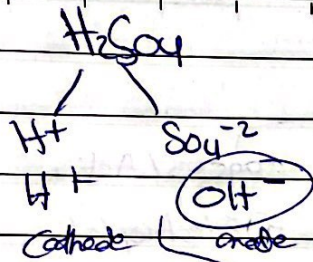 H₂SO₄
H⁺ SO₄⁻²
H⁺ OH⁻
Cathode anode